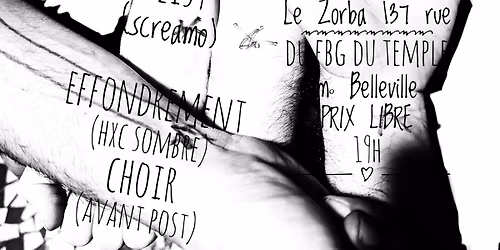 (screamo)
EFFONDREMENT
(HXC SOMBRE)
CHOIR
(AVANT POST)
Le Zorba 137 rue
DU FBG DU TEMPLE
m° Belleville
PRIX LIBRE
19H